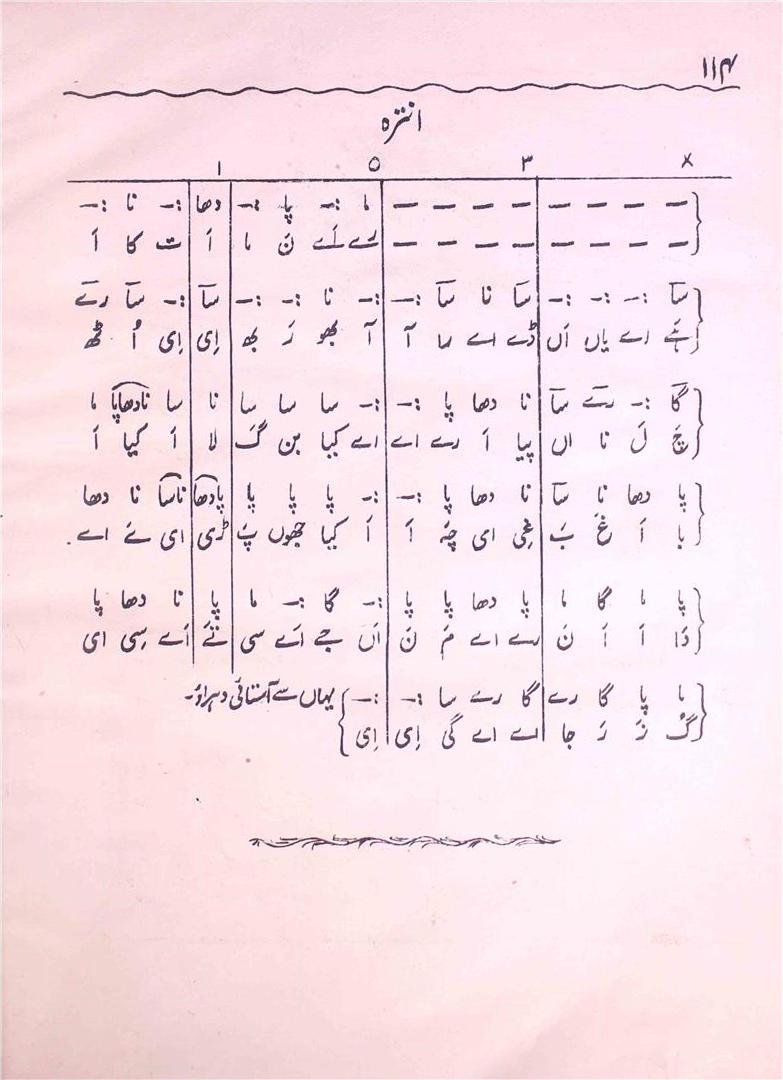 ۱۱۴
انترہ
× ۳ ० ۱
— — — — — — — — — ما :- پا :- دھا :- نا :-
— — — — — — — — — رے اَے نَ ما اَ ت کا اَ
سآ :- :- :- سآ نا سآ :- :- نا :- :- سآ :- سآ رےَ
ہَے اے یاں اَں ڈے اے را آ آ بھو رَ بھ اِی اِی اُ ٹھ
گآ :- رےَ سآ نا دھا پا :- :- سا سا سا نا سا نادھاپا ما
چَ لَ نا اں پیا اَ رے اے اے کیا بن گَ لا اَ کیا اَ
پا دھا نا سآ نا دھا پا :- :- پا پا پا پادھا ناسآ نا دھا
با اَ غَ بَ غِی ای چَہ اَ اَ کیا جھوں پَ ڑی ای نے اے
پا ما گا ما پا دھا پا پا :- گا :- ما پا نا دھا پا
دَا اَ اَ نَ رے اے مَ نَ اَں جے اَے سی تے اَے سِی ای
ما پا گا رے گا رے سا :- :- یہاں سے آستائی دہراؤ۔
گُ زَ رَ جا اے اے گی اِی اِی